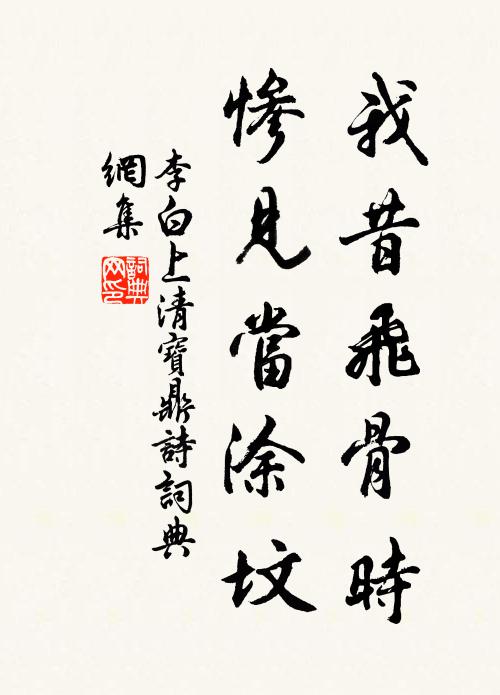 我昔飛骨時
慘見當涂墳
李白上清寶鼎詩詞典
網集
詞典
網印